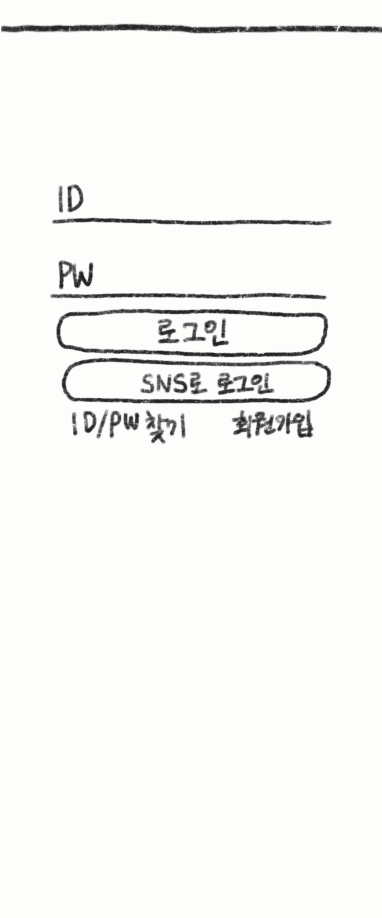 ID
PW
로그인
SNS로 로그인
ID/PW 찾기 회원가입